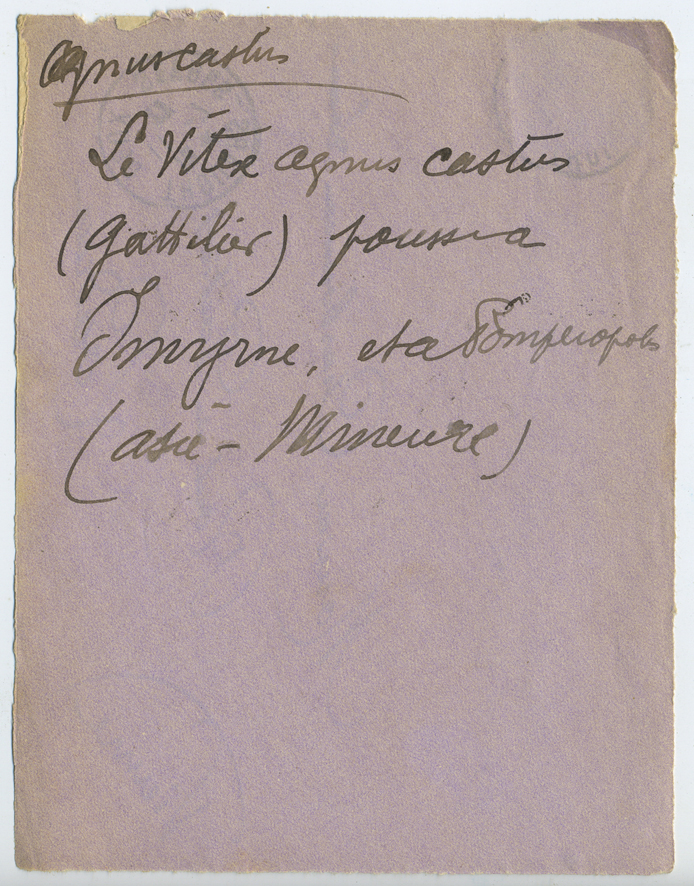 agnus castus
Le Vitex agnus castus
(Gattilier) pousse a
Smyrne, et a Pompeiopolis
(asie-Mineure)